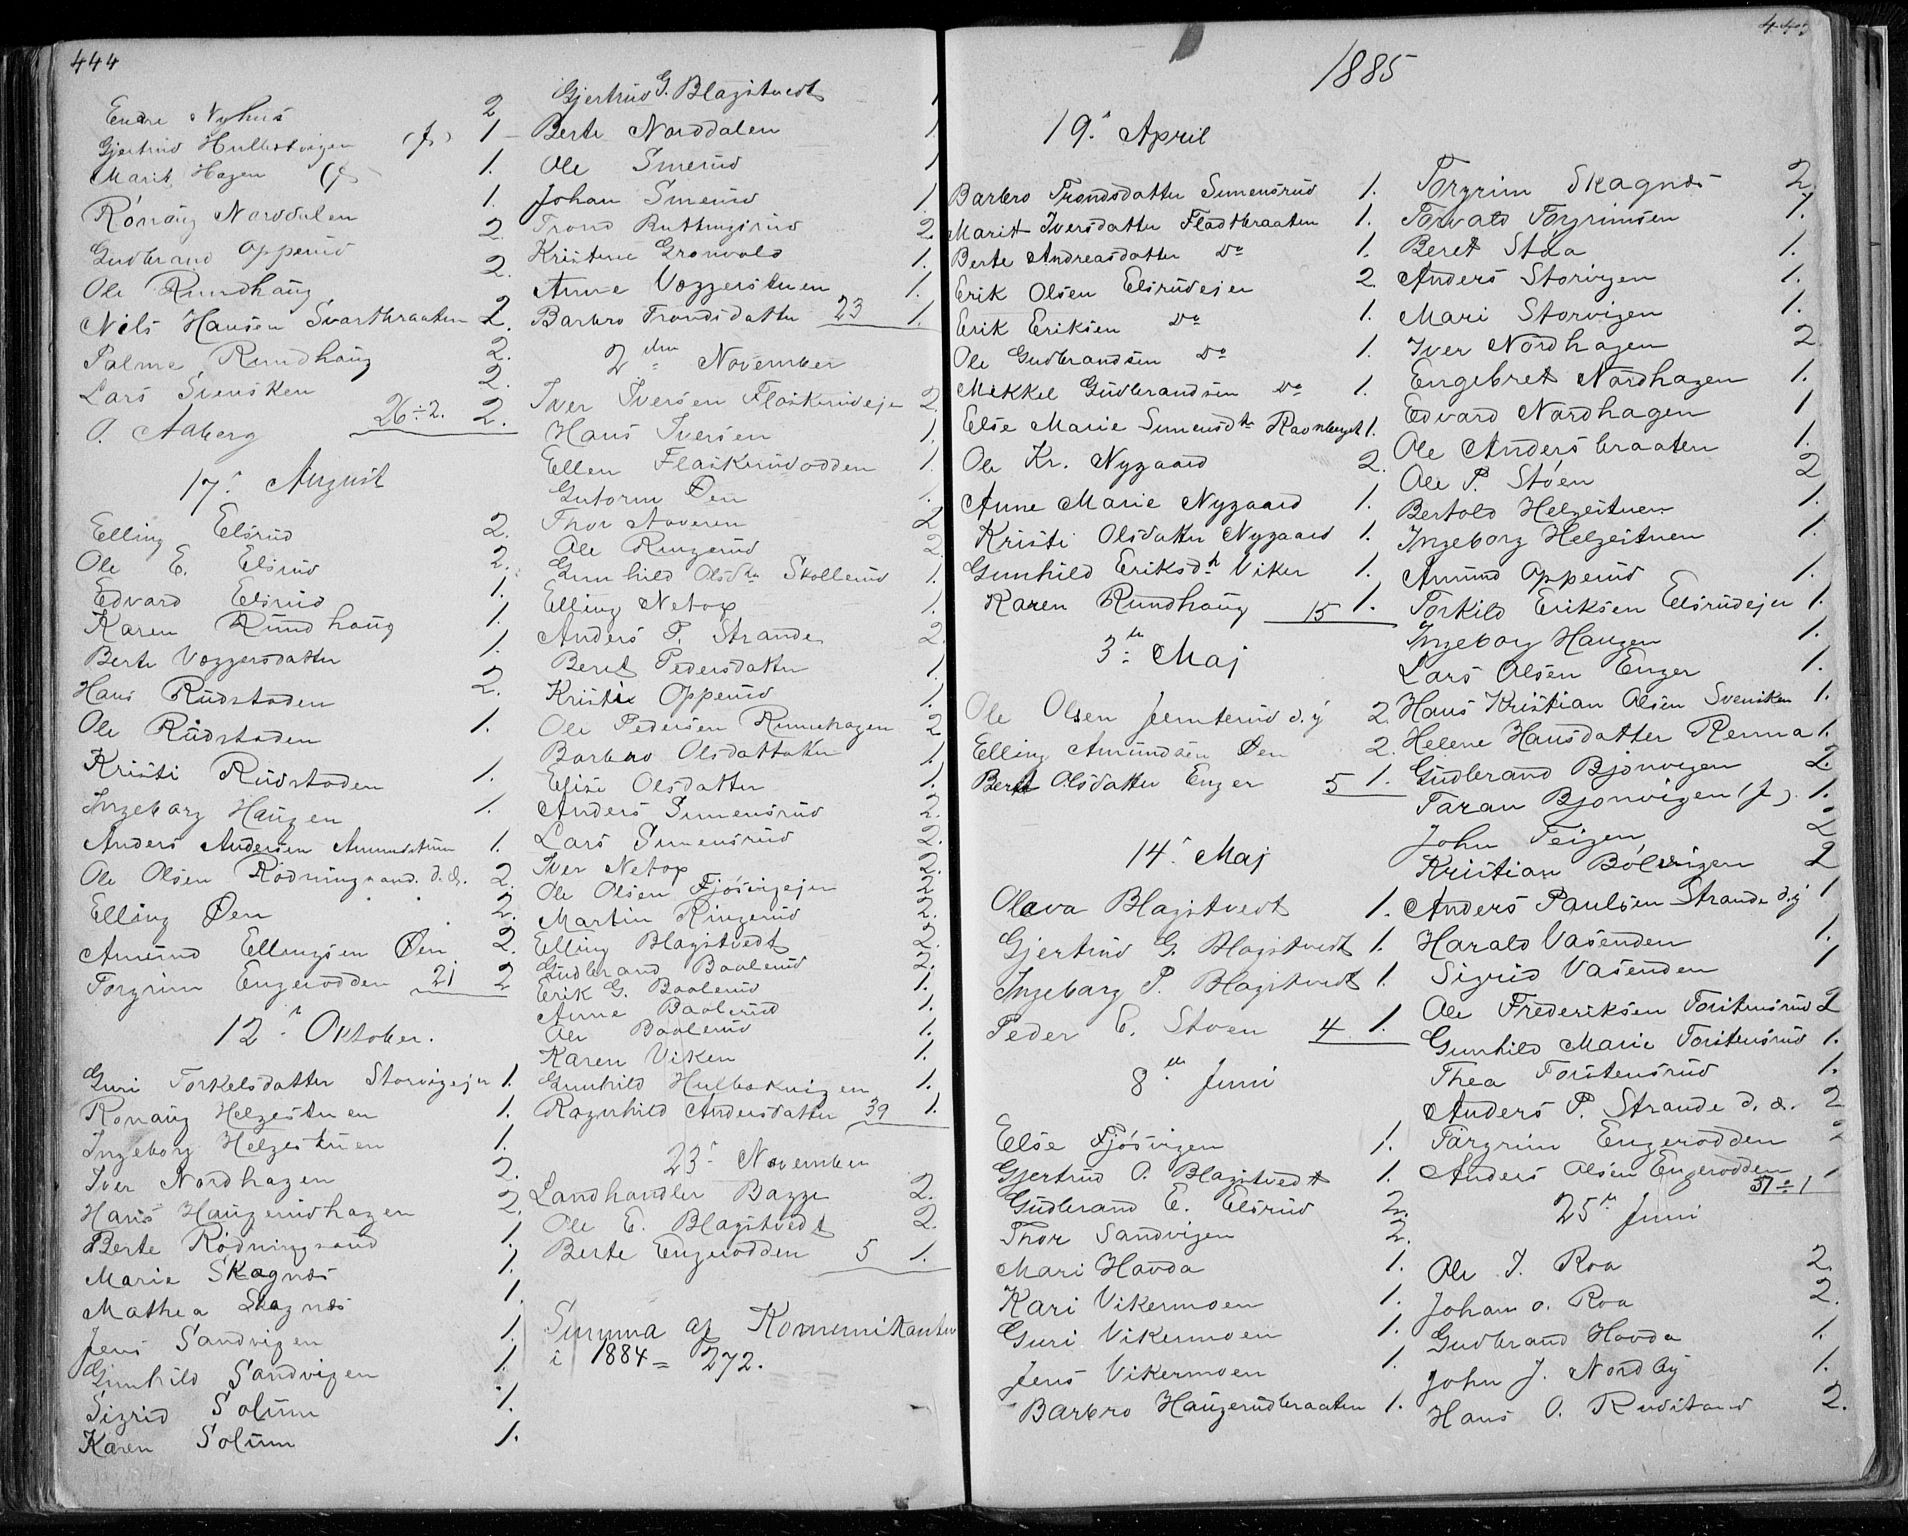 444
Endre Nyhus 2
Gjertrud Hulbakvigen (f) 1
Marit Hagen (f) 1.
Rønaug Norddalen 1.
Gudbrand Opperud 2.
Ole Rundhaug 2.
Nils Hansen Svartbraaten 2.
Palme Rundhaug 2.
Lars Svensken 2.
O. Aaberg 26÷2. 2.
17. August
Elling Elsrud 2.
Ole E. Elsrud 2.
Edvard Elsrud 1.
Karen Rundhaug 1.
Berte Voggersdatter 1.
Hans Rudstaden 2.
Ole Rudstaden 1.
Kristi Rudstaden 1.
Ingeborg Haugen 1.
Anders Andersen Amundstuen 1.
Ole Olsen Rødningsand. d.æ. 2.
Elling Øen 2.
Amund Ellingsen Øen 2.
Torgrim Engerodden 21 2
12. Oktober.
Guri Torkelsdatter Storvigejer 1.
Ronaug Helgestuen 1.
Ingeborg Helgestuen 1.
Iver Nordhagen 2.
Hans Haugerudhagen 2.
Berte Rødningsand 1.
Marie Skagnæs 1.
Mathea Skagnæs 1.
Jens Sandvigen 1.
Gunhild Sandvigen 1.
Sigrid Solum 1.
Karen Solum 1.
Gjertrud G. Blagstvedt 1
Berte Norddalen 1
Ole Smerud 1
Johan Smerud 1.
Trond Buttingsrud 2
Kristine Grønvold 1.
Anne Voggerstuen 1.
Barbro Trondsdatter 23 1.
2den November
Iver Iversen Flaskerudeje 2.
Hans Iversen 1.
Ellen Flaskerudodden 1.
Gutorm Øen 1.
Thor Aaveren 2
Ole Ringerud 2.
Gunhild Olsdtr Skollerud 1.
Elling Netop 1.
Anders P. Strande 2.
Beret Pedersdatter 1.
Kristi Opperud 1.
Ole Pedersen Runehagen 2
Barbro Olsdatter 1.
Elise Olsdatter 1.
Anders Simensrud 2.
Lars Simensrud 2.
Iver Netop 2.
Ole Olsen Fjøsvigejer 2.
Martin Ringerud 2.
Elling Blagstvedt 2.
Gudbrand Baalerud 2.
Erik G. Baalerud 1.
Anne Baalerud 1.
Ole Baalerud 1.
Karen Viken 1.
Gunhild Hulbakvigen 1.
Ragnhild Andersdatter 39 1.
23. November
Landhandler Bagge 2.
Ole E. Blagstvedt 2.
Berte Engerodden 5 1.
Summa af Komunikanter
i 1884 = 272.
445
1885
19. April
Barbro Trondsdatter Simensrud 1.
Marit Iversdatter Fladtbraaten 1.
Berte Andreasdatter Do 1.
Erik Olsen Elsrudejer 2.
Erik Eriksen Do 1.
Ole Gudbrandsen Do 1.
Mekkel Gudbrandsen Do 1.
Else Marie Simensdtr Ravnberget 1.
Ole Kr. Nygaard 2.
Anne Marie Nygaard 1.
Kristi Olsdatter Nygaard 1.
Gunhild Eriksdtr Viker 1.
Karen Rundhaug 15 1.
3die Maj
Ole Olsen Jemterud d.y 2.
Elling Amundsen Øen 2.
Beret Olsdatter Enger 5 1.
14. Maj
Olava Blagstvedt 1.
Gjertrud G. Blagstvedt 1.
Ingeborg P. Blagstvedt 1
Peder E. Støen 4 1.
8de Juni
Else Fjøsvigen 1.
Gjertrud O. Blagstvedt 1.
Gudbrand E. Elsrud 2.
Thor Sandvigen 2.
Mari Havda 1.
Kari Vikermoen 1.
Guri Vikermoen 1.
Jens Vikermoen 1.
Barbro Haugerudbraaten 1.
Torgrim Skagnæs 2.
Torvald Torgrimsen 1.
Beret Støa 1.
Anders Storvigen 1.
Mari Storvigen 1.
Iver Nordhagen 2
Engebret Nordhagen 1.
Edvard Nordhagen 1
Ole Andersbraaten 1.
Ole P. Støen 2
Bertold Helgestuen 1.
Ingeborg Helgestuen 1.
Amund Opperud 1.
Torkild Eriksen Elsrudejer 1.
Ingeborg Haugen 1.
Lars Olsen Enger 1.
Hans Kristian Olsen Svensken 1.
Helene Hansdatter Renna 1.
Gudbrand Bjonvigen 2.
Taran Bjonvigen (f). 1.
John Teigen 2
Kristian Bølvigen 2
Anders Paulsen Strande d.y 1
Harald Vasenden 1.
Sigrid Vasenden 1
Ole Frederiksen Torstensrud 2
Gunhild Marie Torstensrud 1.
Thea Torstensrud 1.
Anders P. Strande d. æ. 2
Torgrim Engerodden 2
Anders Olsen Engerodden 1
51÷1
25de Juni
Ole J. Roa 2.
Johan O. Roa 2.
Gudbrand Havda 1.
John J. Nordby 1.
Hans O. Rudstand 2.